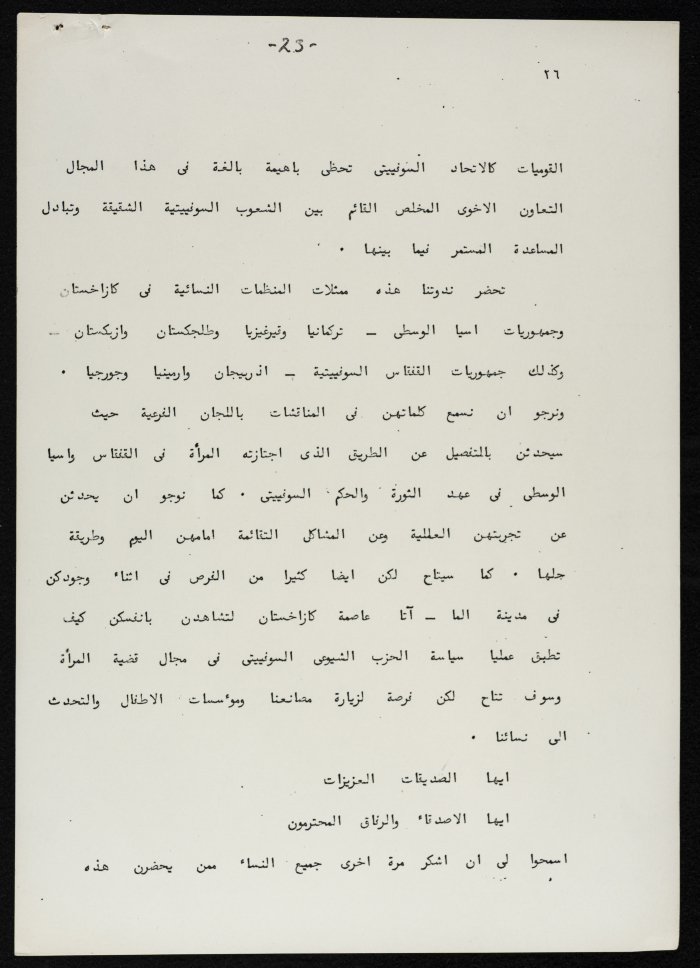 -23-
٢٦
القوميات كالاتحاد السوفييتى تحظى باهيمة بالغة فى هذا المجال
التعاون الاخوى المخلص القائم بين الشعوب السوفييتية الشقيقة وتبادل
المساعدة المستمر فيما بينها .
تحضر ندوتنا هذه ممثلات المنظمات النسائية فى كازاخستان
وجمهوريات اسيا الوسطى ــ تركمانيا وقيرغيزيا وطلجكستان وازبكستان ــ
وكذلك جمهوريات القفقاس السوفييتية ــ اذربيجان وارمينيا وجورجيا .
ونرجو ان نسمع كلماتهن فى المناقشات باللجان الفرعية حيث
سيحدثن بالتفصيل عن الطريق الذى اجتازته المرأة فى القفقاس واسيا
الوسطى فى عهد الثورة والحكم السوفييتى . كما نوجو ان يحدثن
عن تجربتهن العملية وعن المشاكل القائمة امامهن اليوم وطريقة
حلها . كما سيتاح لكن ايضا كثيرا من الفرص فى اثناء وجودكن
فى مدينة الما ــ آتا عاصمة كازاخستان لتشاهدن بانفسكن كيف
تطبق عمليا سياسة الحزب الشيوعى السوفييتى فى مجال قضية المرأة
وسوف تتاح لكن فرصة لزيارة مصانعنا ومؤسسات الاطفال والتحدث
الى نسائنا .
ايها الصديقات العزيزات
ايها الاصدقاء والرفاق المحترمون
اسمحوا لى ان اشكر مرة اخرى جميع النساء ممن يحضرن هذه